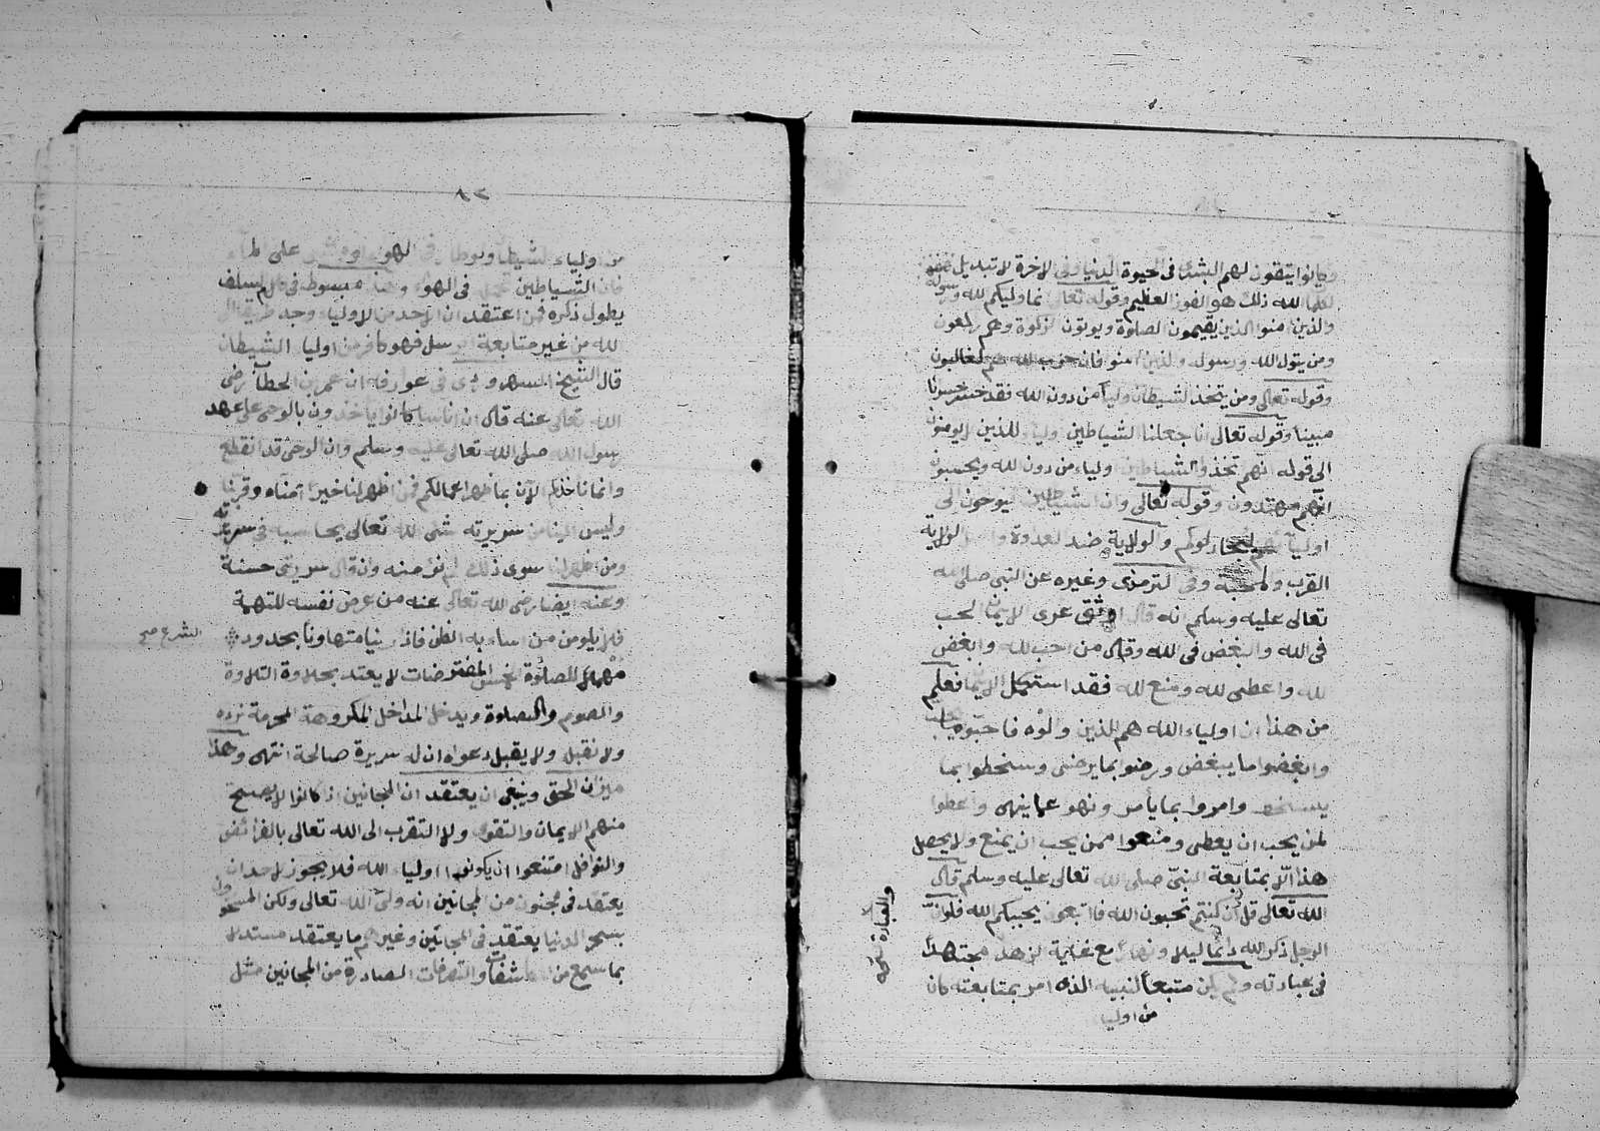 وكانوا يتقون لهم البشرى في حيوة الدنيا وفي الاخرة لا تبديل
لكلمات الله ذلك هو الفوز العظيم وقوله تعالى انما وليكم الله ورسوله
والذين امنوا الذين يقيمون الصلوة ويوتون الزكوة وهم راكعون
ومن يتول الله ورسوله والذين امنوا فان حزب الله هم الغالبون
وقوله تعالى ومن يتخذ الشيطان وليا من دون الله فقد خسر خسرانا
مبينا وقوله تعالى انا جعلنا الشياطين اولياء للذين لا يومنون
الى قوله انهم اتخذوا الشياطين اولياء من دون الله ويحسبون
انهم مهتدون وقوله تعالى وان الشياطين ليوحون الى
اوليائهم ليجادلوكم والولاية ضد العدوة واصل الولاية
القرب والمحبة وفي الترمذى وغيره عن النبي صلى الله
تعالى عليه وسلم انه قال اوثق عرى الايمان الحب
في الله والبغض في الله وقال من احب لله وابغض
لله واعطى لله ومنع لله فقد استكمل الايمان فعلم
من هذا ان اولياء الله هم الذين والوه فاحبوا ما يحب
وابغضوا ما يبغض ورضوا بما يرضى وسخطوا بما
يسخط وامروا بما يأمر ونهو عما ينهى واعطوا
لمن يحب ان يعطى ومنعوا ممن يحب ان يمنع ولا يحصل
هذا الا بمتابعة النبي صلى الله تعالى عليه وسلم قال
الله تعالى قل ان كنتم تحبون الله فاتبعوني يحببكم الله فلو ان
الرجل ذكر الله دائما ليلا ونهارا مع غاية الزهد مجتهدا
في عبادته ولم يكن متبعا لنبيه الذى امر بمتابعته كان
من اولياء
والعبادة
٨٢
من اولياء الشيطان ولو طار في الهوى او مشى على الماء
فان الشياطين تحمل في الهوى وهذا مبسوط في كلام السلف
يطول ذكره فمن اعتقد ان لاحد من الاولياء وجد طريقا الى
الله من غير متابعة الرسل فهو كافر من اولياء الشيطان
قال الشيخ السهروردى في عوارفه ان عمر بن الخطاب رضى
الله تعالى عنه قال ان اناسا كانوا ياخذون بالوحى على عهد
رسول الله صلى الله تعالى عليه وسلم وان الوحى قد انقطع
وانما ناخذكم الآن بما ظهر من اعمالكم فمن اظهر لنا خيرا امناه وقربناه
وليس الينا من سريرته شئ الله تعالى يحاسبه في سريرته
ومن اظهر لنا سوى ذلك لم نؤمنه وان قال سريرتى حسنة
وعنه ايضا رضى الله تعالى عنه من عرض نفسه للتهمة
فلا يلومن من اساء به الظن فاذا راينا متهاونا بحدود
الشرع صح
مهملا للصلوة الخمس المفترضات لا يعتد بحلاوة التلاوة
والصوم والصلوة ويدخل المداخل المكروهة المحرمة نرده
ولا نقبله ولا يقبل دعواه ان له سريرة صالحة انتهى وهذا
ميزان الحق وينبغى ان يعتقد ان المجانين اذا كانوا لا يصح
منهم الايمان والتقوى ولا التقرب الى الله تعالى بالفرائض
والنوافل امتنعوا ان يكونوا اولياء الله فلا يجوز لاحد ان
يعتقد في مجنون من المجانين انه ولى الله تعالى ولكن المسحورون
بسحر الدنيا يعتقد في المجانين وغيرهم ما يعتقد مستدلا
بما سمع من المكاشفات والتصرفات الصادرة من المجانين مثل